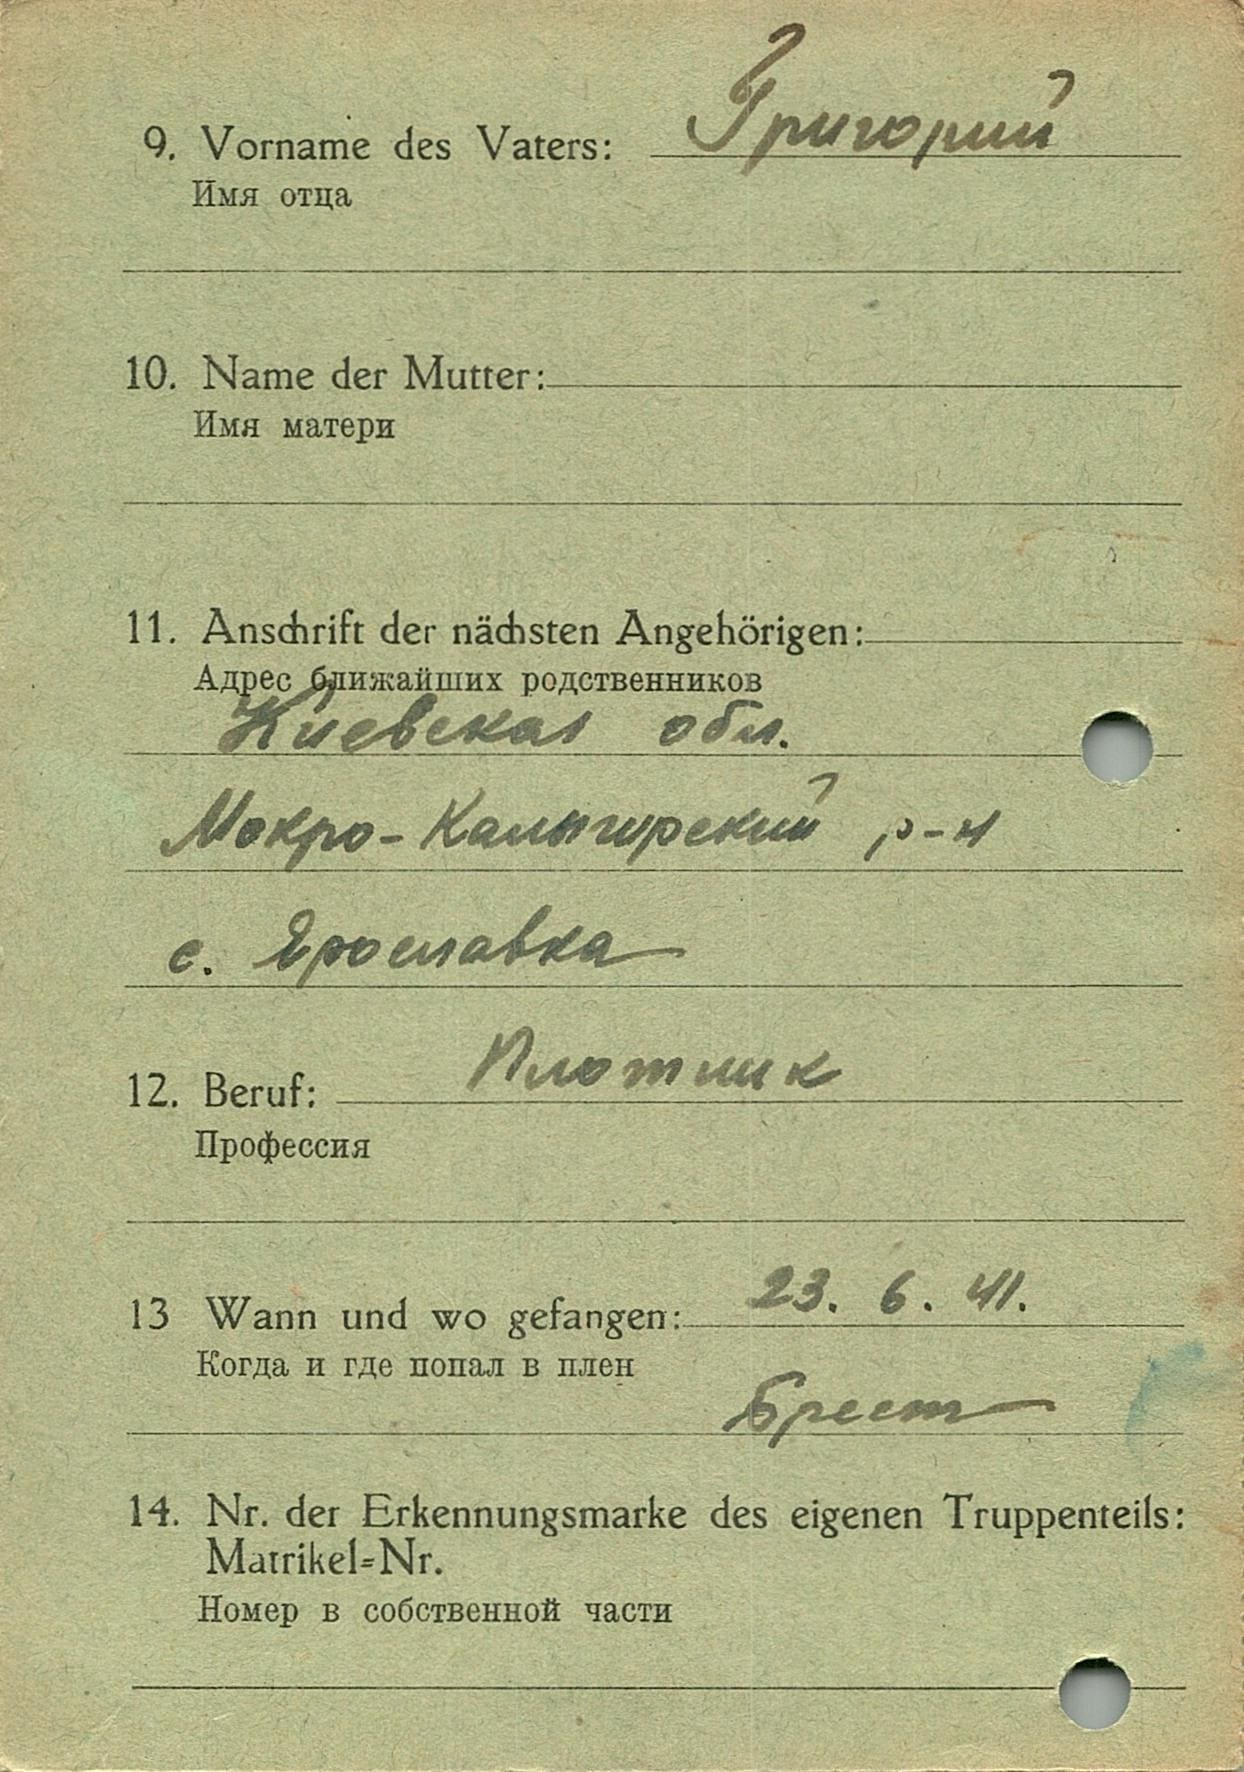 9. Vorname des Vaters: Григорий
Имя отца
10. Name der Mutter:
Имя матери
11. Anschrift der nächsten Angehörigen:
Адрес ближайших родственников
Киевская обл.
Мокро-Калыгирский р-н
с. Ярославка
12. Beruf: Плотник
Профессия
13 Wann und wo gefangen: 23. 6. 41.
Когда и где попал в плен
Брест
14. Nr. der Erkennungsmarke des eigenen Truppenteils:
Matrikel=Nr.
Номер в собственной части